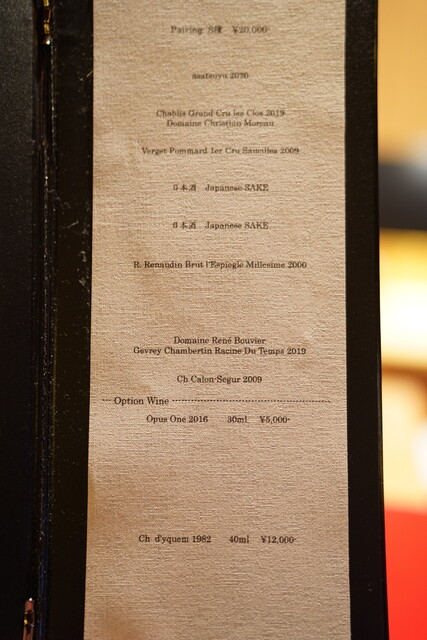 Pairing 8種 ¥20,000-
asatsuyu 2020
Chablis Grand Cru les Clos 2019
Domaine Christian Moreau
Verget Pommard 1er Cru Saucilles 2009
日本酒 Japanese SAKE
日本酒 Japanese SAKE
R. Renaudin Brut l'Espiegle Millesime 2000
Domaine René Bouvier
Gevrey Chambertin Racine Du Temps 2019
Ch Calon-Segur 2009
Option Wine
Opus One 2016 30ml ¥5,000-
Ch d'yquem 1982 40ml ¥12,000-